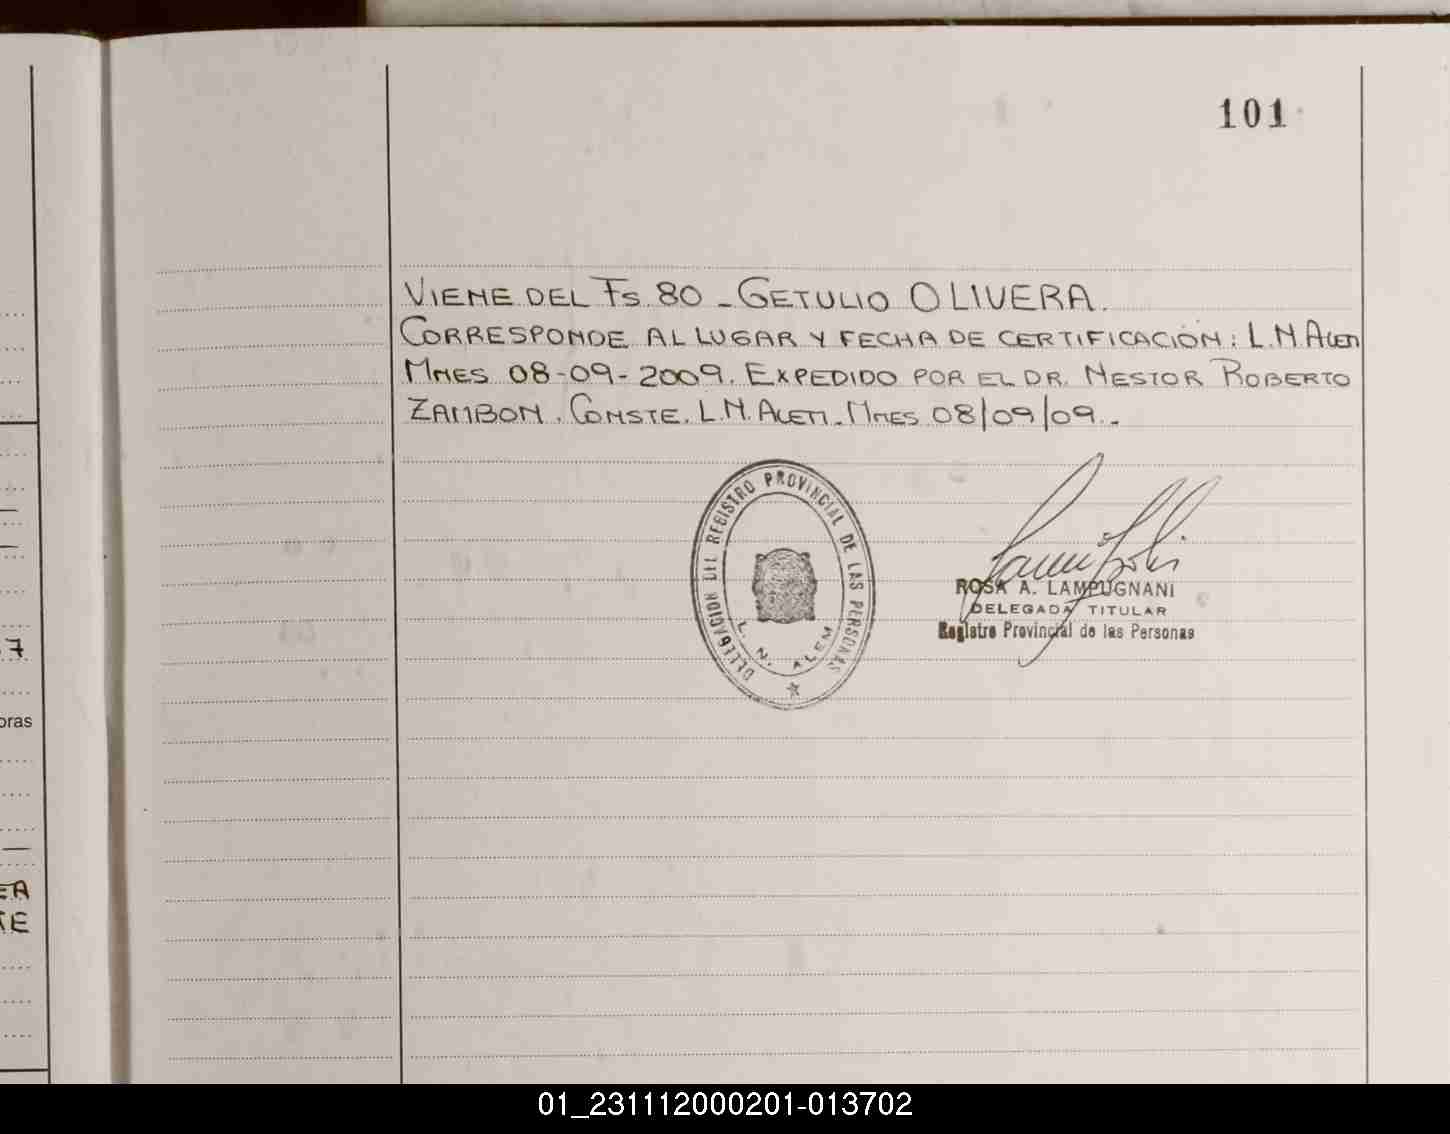 101
VIENE DEL Fs 80 - GETULIO OLIVERA.
CORRESPONDE AL LUGAR Y FECHA DE CERTIFICACIÓN: L.N.ALEM
MNES 08-09-2009. EXPEDIDO POR EL DR. NESTOR ROBERTO
ZAMBON. CONSTE. L.N.ALEM. MNES 08/09/09.-
DELEGACION DEL REGISTRO PROVINCIAL DE LAS PERSONAS
L. N. ALEM
ROSA A. LAMPUGNANI
DELEGADA TITULAR
Registro Provincial de las Personas
7
oras
EA
E
01_231112000201-013702